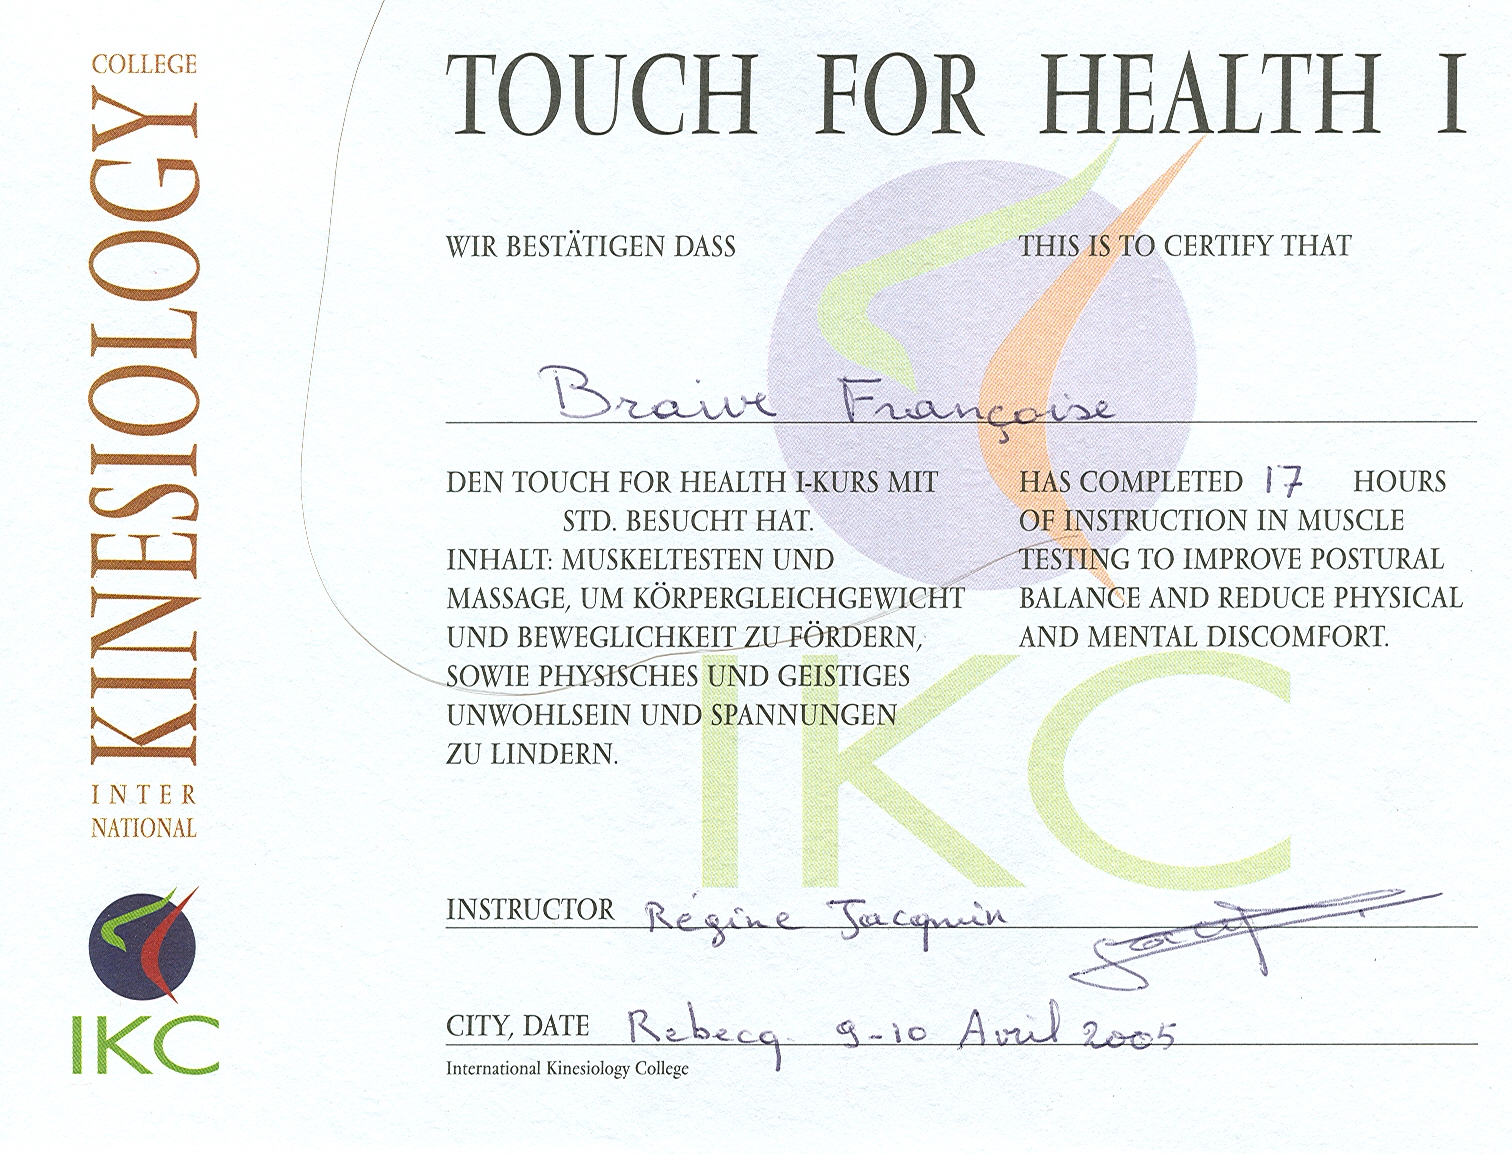 COLLEGE
KINESIOLOGY
INTER
NATIONAL
IKC
TOUCH FOR HEALTH I
WIR BESTÄTIGEN DASS
THIS IS TO CERTIFY THAT
Braive Françoise
DEN TOUCH FOR HEALTH I-KURS MIT
STD. BESUCHT HAT.
INHALT: MUSKELTESTEN UND
MASSAGE, UM KÖRPERGLEICHGEWICHT
UND BEWEGLICHKEIT ZU FÖRDERN,
SOWIE PHYSISCHES UND GEISTIGES
UNWOHLSEIN UND SPANNUNGEN
ZU LINDERN.
HAS COMPLETED 17 HOURS
OF INSTRUCTION IN MUSCLE
TESTING TO IMPROVE POSTURAL
BALANCE AND REDUCE PHYSICAL
AND MENTAL DISCOMFORT.
IKC
INSTRUCTOR Régine Jacquin
CITY, DATE Rebecq 9-10 Avril 2005
International Kinesiology College